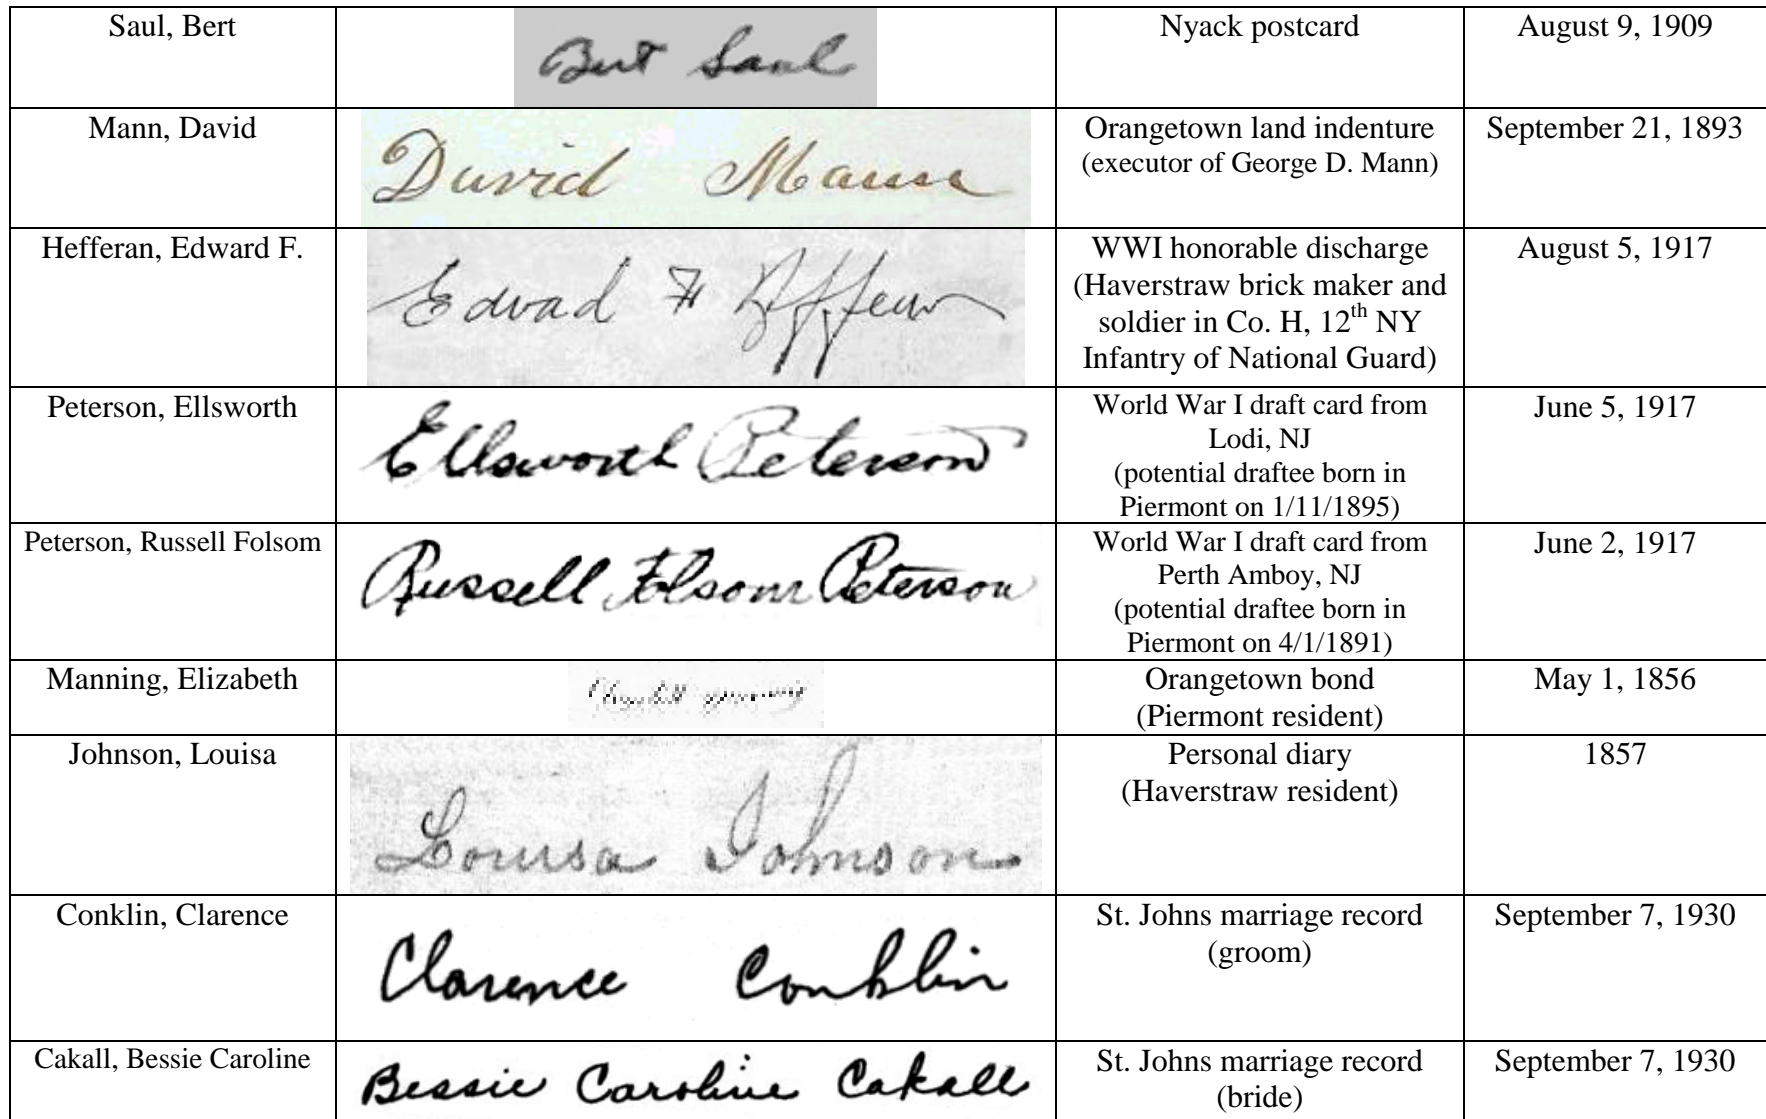 Saul, Bert
Bert Saul
Nyack postcard
August 9, 1909
Mann, David
David Mann
Orangetown land indenture
(executor of George D. Mann)
September 21, 1893
Hefferan, Edward F.
Edwad F
WWI honorable discharge
(Haverstraw brick maker and
soldier in Co. H, 12th NY
Infantry of National Guard)
August 5, 1917
Peterson, Ellsworth
Ellsworth Peterson
World War I draft card from
Lodi, NJ
(potential draftee born in
Piermont on 1/11/1895)
June 5, 1917
Peterson, Russell Folsom
Russell Folsom Peterson
World War I draft card from
Perth Amboy, NJ
(potential draftee born in
Piermont on 4/1/1891)
June 2, 1917
Manning, Elizabeth
Orangetown bond
(Piermont resident)
May 1, 1856
Johnson, Louisa
Louisa Johnson
Personal diary
(Haverstraw resident)
1857
Conklin, Clarence
Clarence Conklin
St. Johns marriage record
(groom)
September 7, 1930
Cakall, Bessie Caroline
Bessie Caroline Cakall
St. Johns marriage record
(bride)
September 7, 1930